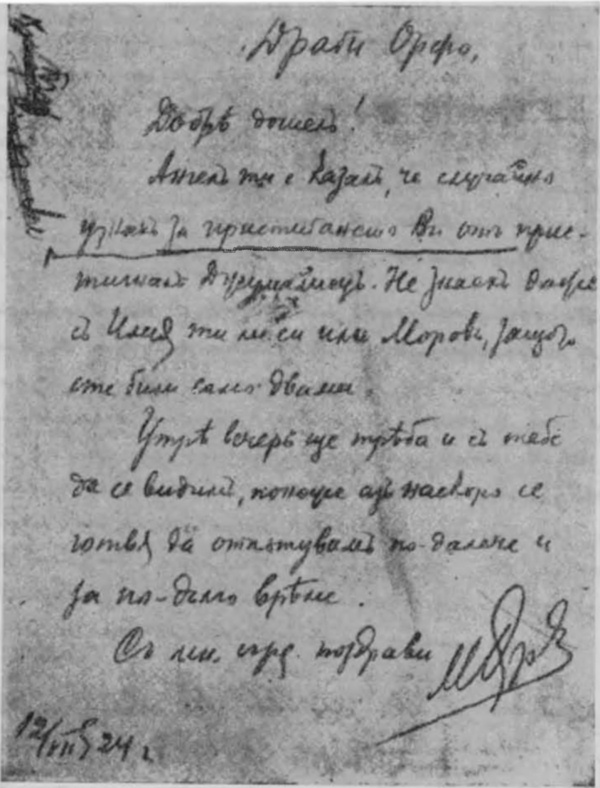 Драги Орфо,
Добрѣ дошелъ!
Ангелъ ти е казалъ, че случайно
узнахъ за пристигането Ви отъ прис-
тигналъ
Не знаехъ
съ Илия ти ли си или Моровъ, защото
сте били само двама.
Утрѣ вечеръ ще трѣба и съ тебе
да се видимъ, понеже азъ наскоро се
готвя да отпътувамъ по-далече и
за по-дълго врѣме.
Съ поздрави
12/VIII 24 г.